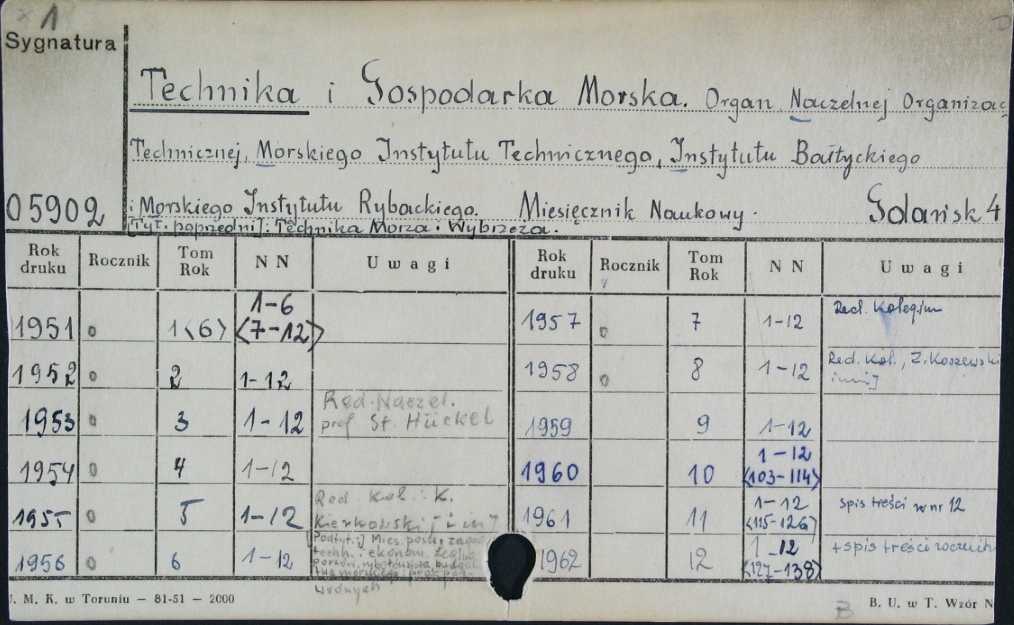 1
Sygnatura
Technika i Gospodarka Morska. Organ Naczelnej Organizac
Technicznej, Morskiego Instytutu Technicznego, Instytutu Bałtyckiego
05902
i Morskiego Instytutu Rybackiego. Miesięcznik Naukowy. Gdańsk 4
[Tyt. poprzedni]: Technika Morza i Wybrzeża.
Rok druku Rocznik Tom Rok NN Uwagi Rok druku Rocznik Tom Rok NN Uwagi
1951 0 1<6> 1-6 <7-12> 1957 0 7 1-12 Red. Kolegium
1952 0 2 1-12 1958 0 8 1-12 Red. Kol., Z. Koszewski i inni]
1953 0 3 1-12 Red. Naczel. prof St. Hückel 1959 9 1-12
1954 0 4 1-12 1960 10 1-12 <103-114>
1955 0 5 1-12 Red. Kol.: K. [i in] 1961 11 1-12 <115-126> spis treści w nr 12
1956 0 6 1-12 [Podtyt.:] Mies. techn. i ekonom. 1962 12 1-12 <127-138> + spis treści
U. M. K. w Toruniu – 81-51 – 2000
B B. U. w T. Wzór N